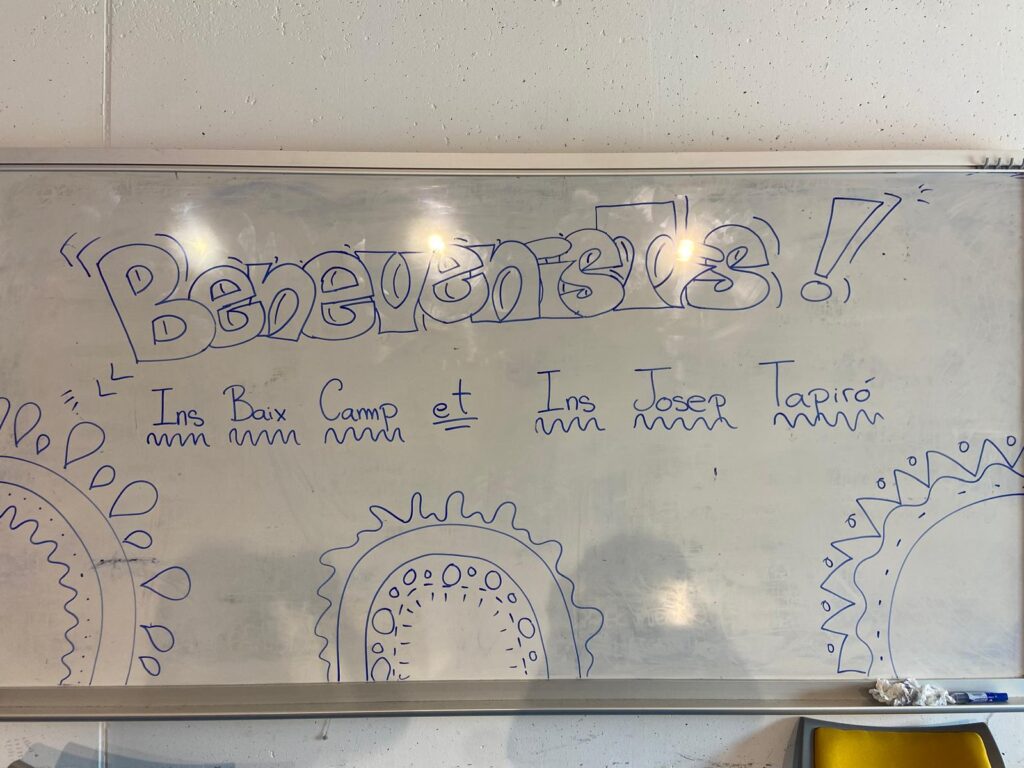 !
Ins Baix Camp et Ins Josep Tapiró